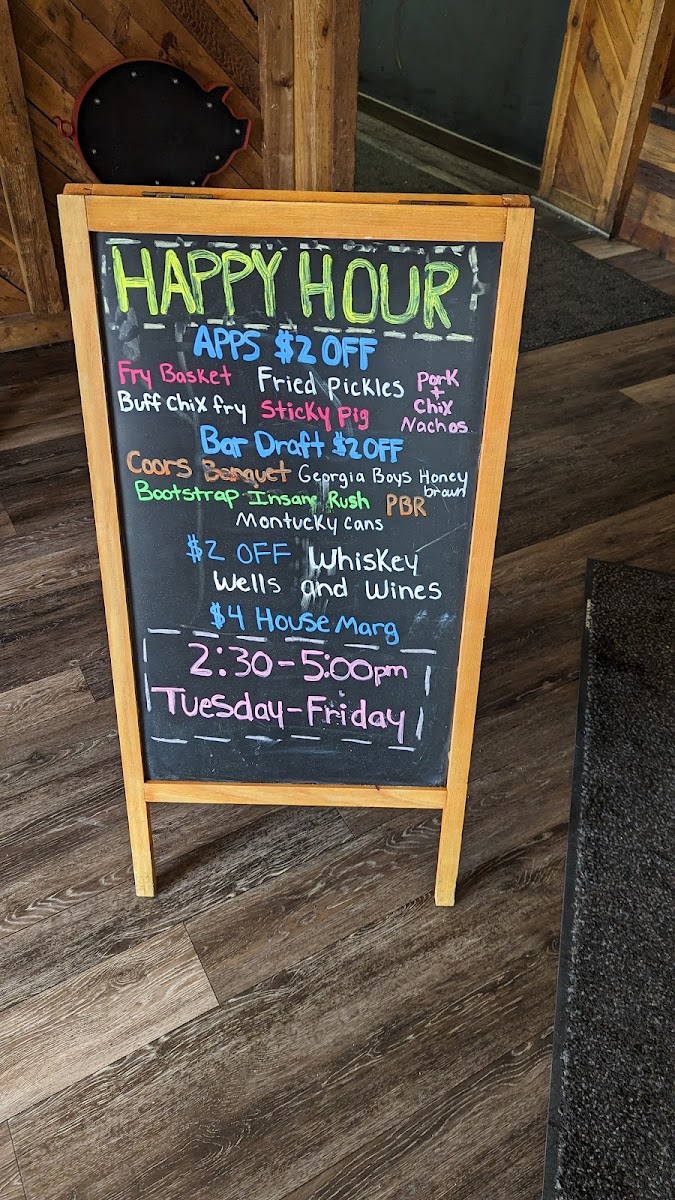 HAPPY HOUR
APPS $2 OFF
Fry Basket Fried Pickles Pork
+
Buff Chix fry Sticky Pig Chix
Nachos
Bar Draft $2 OFF
Coors Banquet Georgia Boys Honey
brown
Bootstrap Insane Rush PBR
Montucky cans
$2 OFF Whiskey
Wells and Wines
$4 House Marg
2:30-5:00pm
Tuesday-Friday